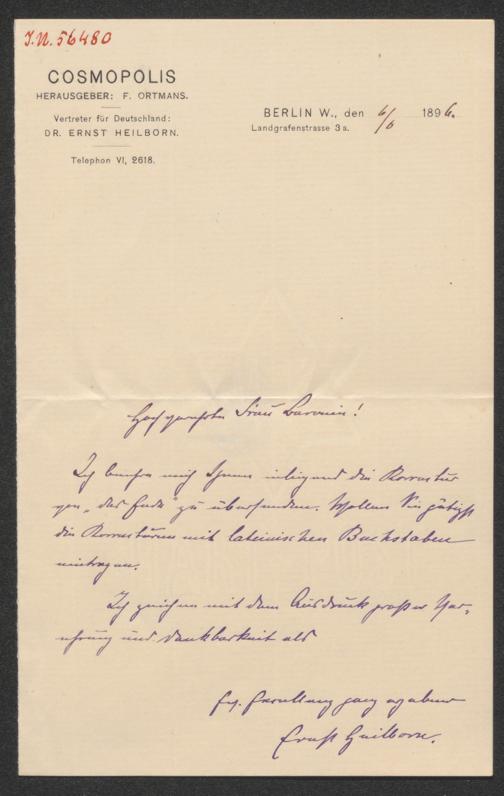 J.N. 56480
COSMOPOLIS
HERAUSGEBER: F. ORTMANS.
Vertreter für Deutschland:
DR. ERNST HEILBORN.
Telephon VI, 2618.
BERLIN W., den 6/6 1896.
Landgrafenstrasse 3a.
Hochgeehrte Frau Baronin!
Ich beehre mich Ihnen inliegend die Korrektur
von „das Ende" zu übersenden. Wollen Sie gütigst
die Korrekturen mit lateinischen Buchstaben
eintragen.
Ich zeichne mit dem Ausdruck großer Ver-
ehrung und Dankbarkeit als
Ew. Excellenz ganz ergebener
Ernst Heilborn.